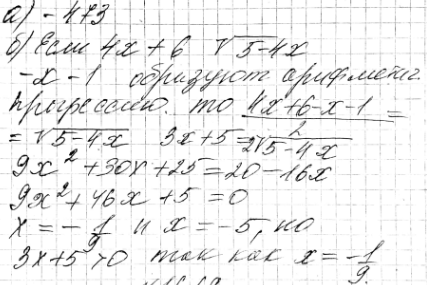 а) -473
б) Если 4x + 6 √5-4x
-x - 1 образуют арифметич.
прогрессию. то 4x+6-x-1 =
= √5-4x 3x+5 = 2√5-4x 2
9x² + 30x + 25 = 20 - 16x
9x² + 46x + 5 = 0
x = - 1/9 и x = -5, но
3x+5 > 0 так как x = - 1/9.